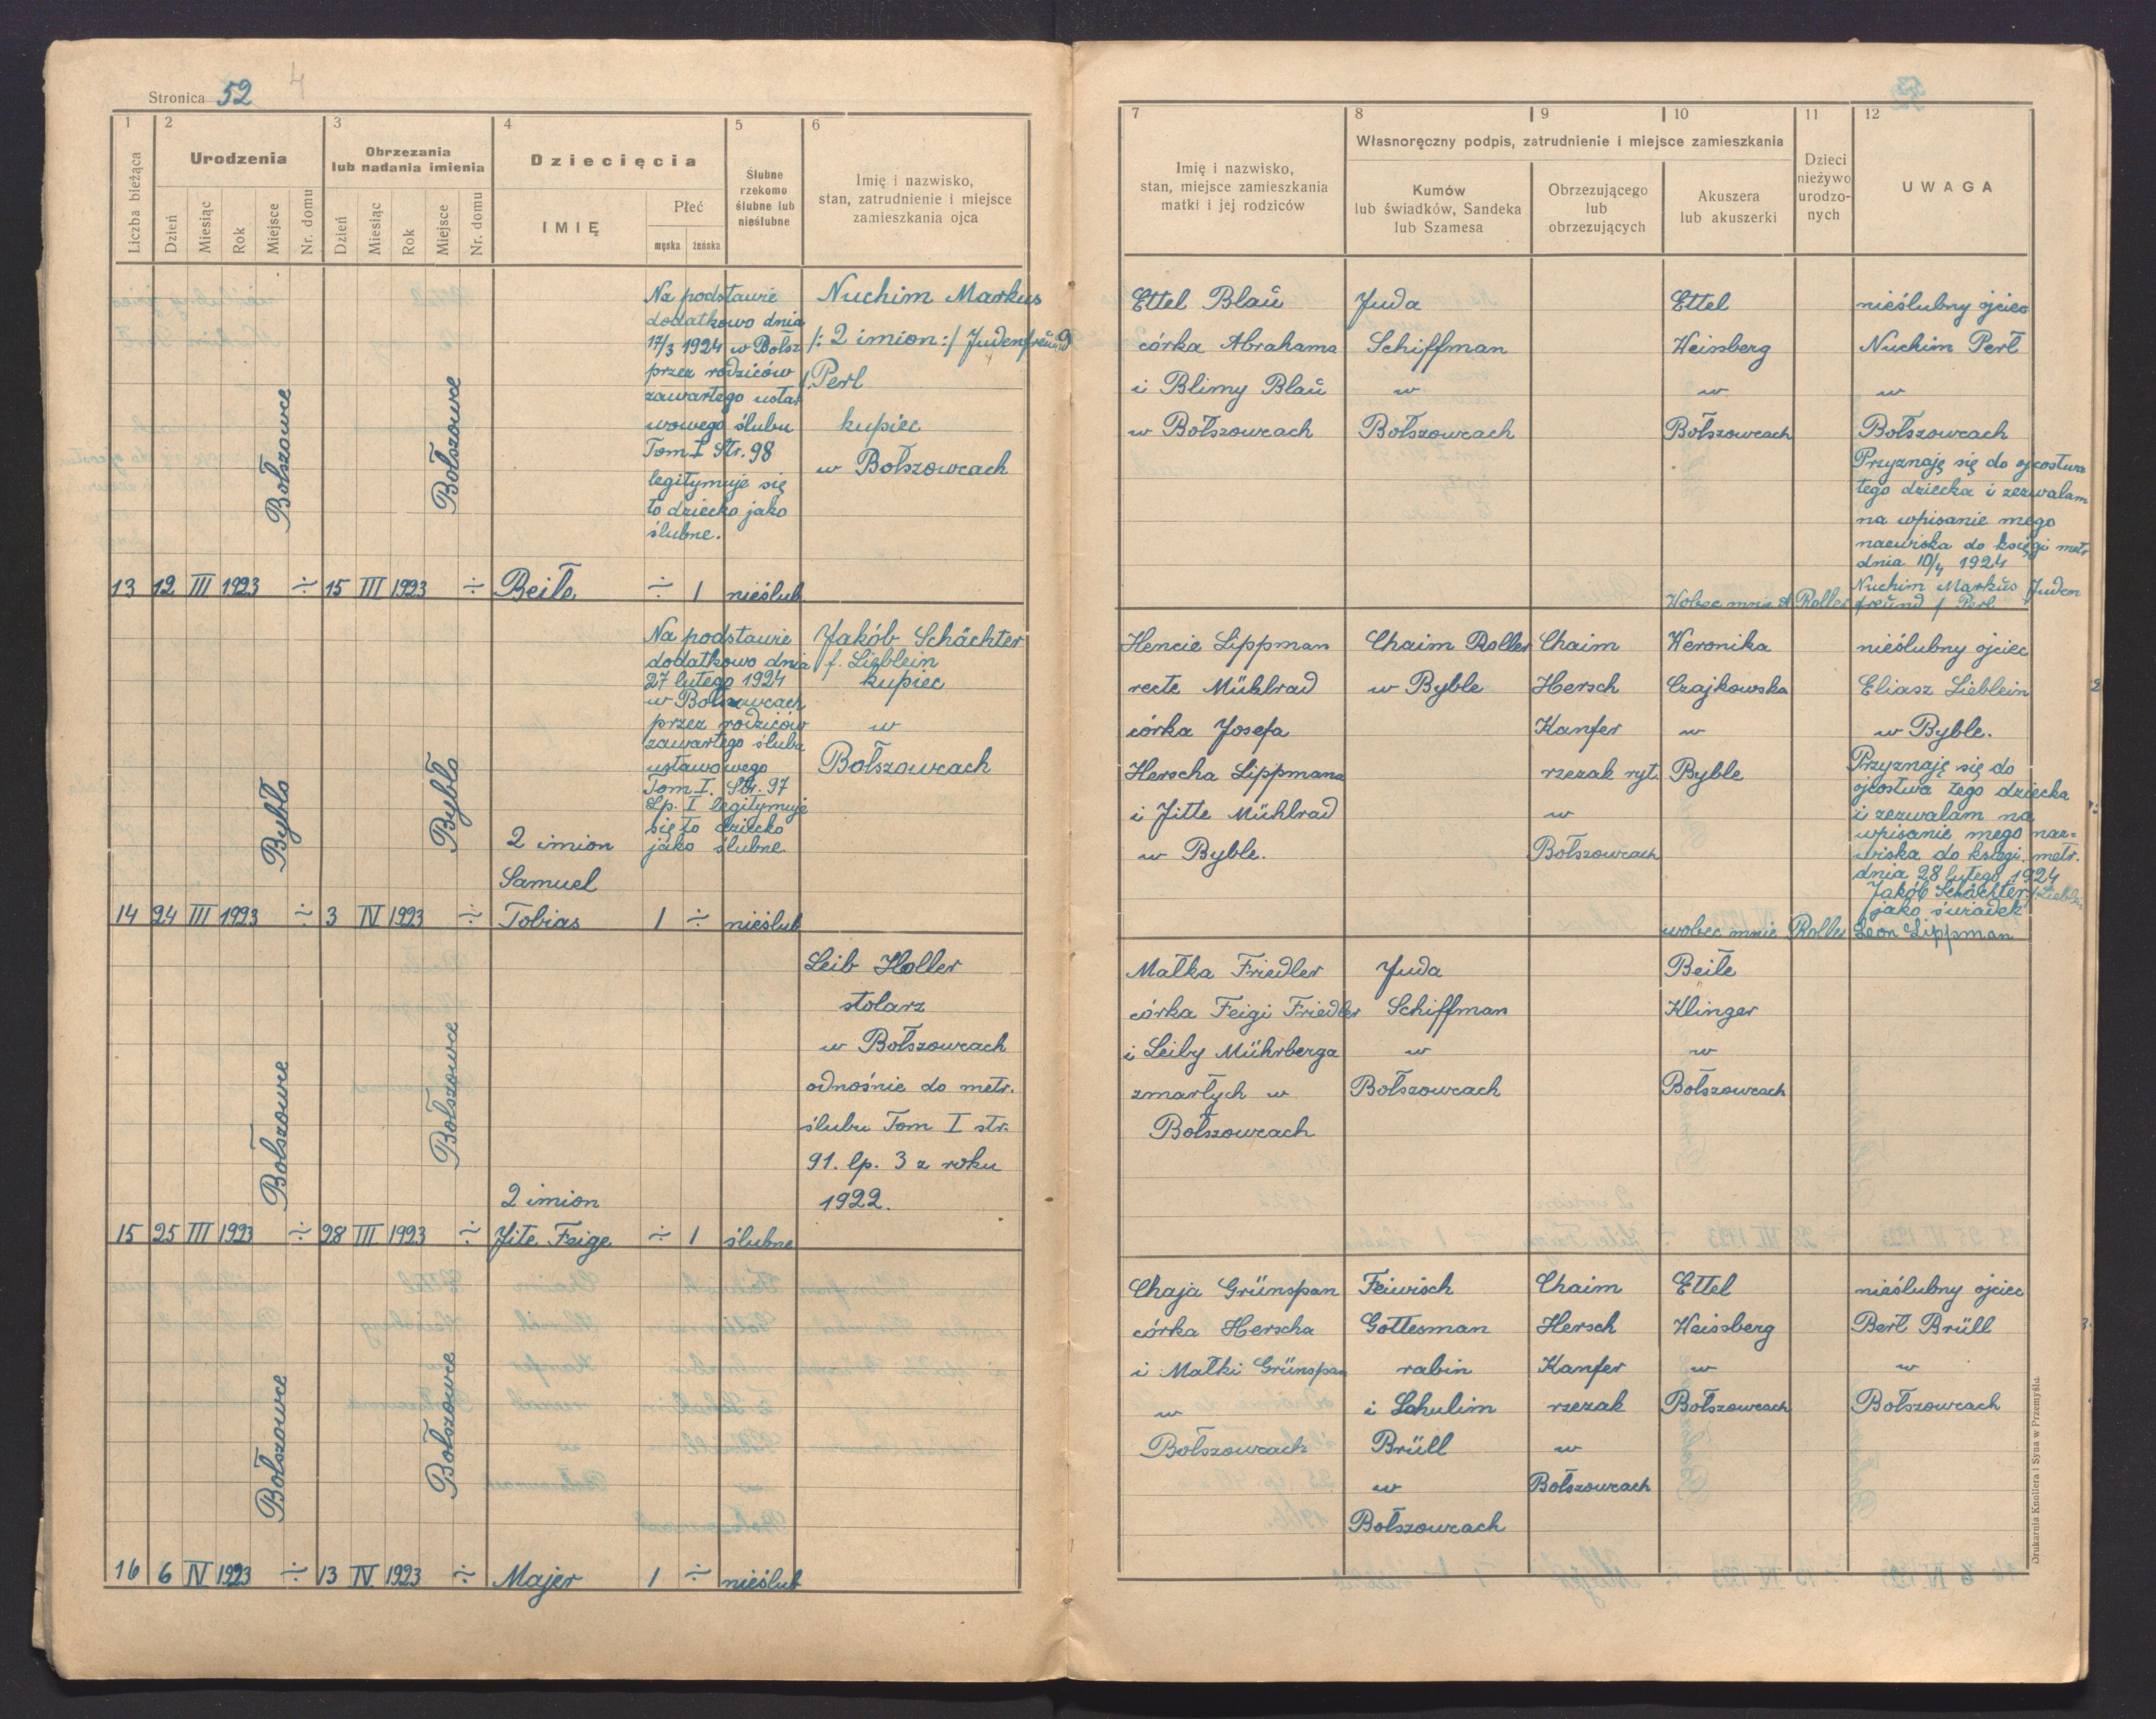 Stronica 52 4
1 2 3 4 5 6
Liczba bieżąca
Urodzenia
Obrzezania
lub nadania imienia
Dziecięcia
Ślubne
rzekomo
ślubne lub
nieślubne
Imię i nazwisko,
stan, zatrudnienie i miejsce
zamieszkania ojca
Dzień Miesiąc Rok Miejsce Nr. domu
Dzień Miesiąc Rok Miejsce Nr. domu
IMIĘ
Płeć
męska żeńska
7 8 9 10 11 12
Imię i nazwisko,
stan, miejsce zamieszkania
matki i jej rodziców
Własnoręczny podpis, zatrudnienie i miejsce zamieszkania
Kumów
lub świadków, Sandeka
lub Szamesa
Obrzezującego
lub
obrzezujących
Akuszera
lub akuszerki
Dzieci
nieżywo
urodzo-
nych
UWAGA
13 12 III 1923 Bołszowce ÷ 15 III 1923 Bołszowce ÷ Beila ÷ 1 nieślub
Na podstawie
dodatkowo dnia
17/3 1924 w Bołsz
przez rodziców
zawartego usta
wowego ślubu
Tom I Str. 98
legitymuje się
to dziecko jako
ślubne.
Nuchim Markus
/: 2 imion :/ Judenfreünd
f. Perl
kupiec
w Bołszowcach
Ettel Blaü
córka Abrahama
i Blimy Blaü
w Bołszowcach
Juda
Schiffman
w
Bołszowcach
Ettel
Weissberg
w
Bołszowcach
Wobec mnie A Roller
nieślubny ojciec
Nuchim Perl
w
Bołszowcach
Przyznaję się do ojcostwa
tego dziecka i zezwalam
na wpisanie mego
nazwiska do księgi metr
dnia 10/4 1924
Nuchim Markus Juden
freünd f Perl
14 24 III 1923 Bybło ÷ 3 IV 1923 Bybło ÷
2 imion
Samuel
Tobias 1 ÷ nieślub
Na podstawie
dodatkowo dnia
27 lutego 1924
w Bołszowcach
przez rodziców
zawartego ślubu
ustawowego
Tom I. Str. 97
Lp. I legitymuje
się to dziecko
jako ślubne.
Jakób Schächter
f. Lieblein
kupiec
w
Bołszowcach
Hencie Lippman
recte Mühlrad
córka Josefa
Herscha Lippmana
i Jitte Mühlrad
w Byble.
Chaim Roller
w Byble
Chaim
Hersch
Kanfer
rzezak ryt.
w
Bołszowcach
Weronika
Czajkowska
w
Byble
wobec mnie Roller
nieślubny ojciec
Eliasz Lieblein
w Byble.
Przyznaję się do
ojcostwa tego dziecka
i zezwalam na
wpisanie mego naz=
wiska do księgi metr.
dnia 28 lutego 1924
Jakób Schächter f Lieblein
jako świadek
Leon Lippman
15 25 III 1923 Bołszowce ÷ 28 III 1923 Bołszowce ÷
2 imion
Jite Feige ÷ 1 ślubne
Leib Holler
stolarz
w Bołszowcach
odnośnie do metr.
ślubu Tom I str.
91. lp. 3 z roku
1922.
Małka Friedler
córka Feigi Friedler
i Leiby Mührberga
zmarłych w
Bołszowcach
Juda
Schiffman
w
Bołszowcach
Beile
Klinger
w
Bołszowcach
16 6 IV 1923 Bołszowce ÷ 13 IV 1923 Bołszowce ÷ Majer 1 ÷ nieślub
Chaja Grünspan
córka Herscha
i Małki Grünspan
w
Bołszowcach
Feiwisch
Gottesman
rabin
i Schulim
Brüll
w
Bołszowcach
Chaim
Hersch
Kanfer
rzezak
w
Bołszowcach
Ettel
Weissberg
w
Bołszowcach
nieślubny ojciec
Berl Brüll
w
Bołszowcach
Drukarnia Knollera i Syna w Przemyślu.